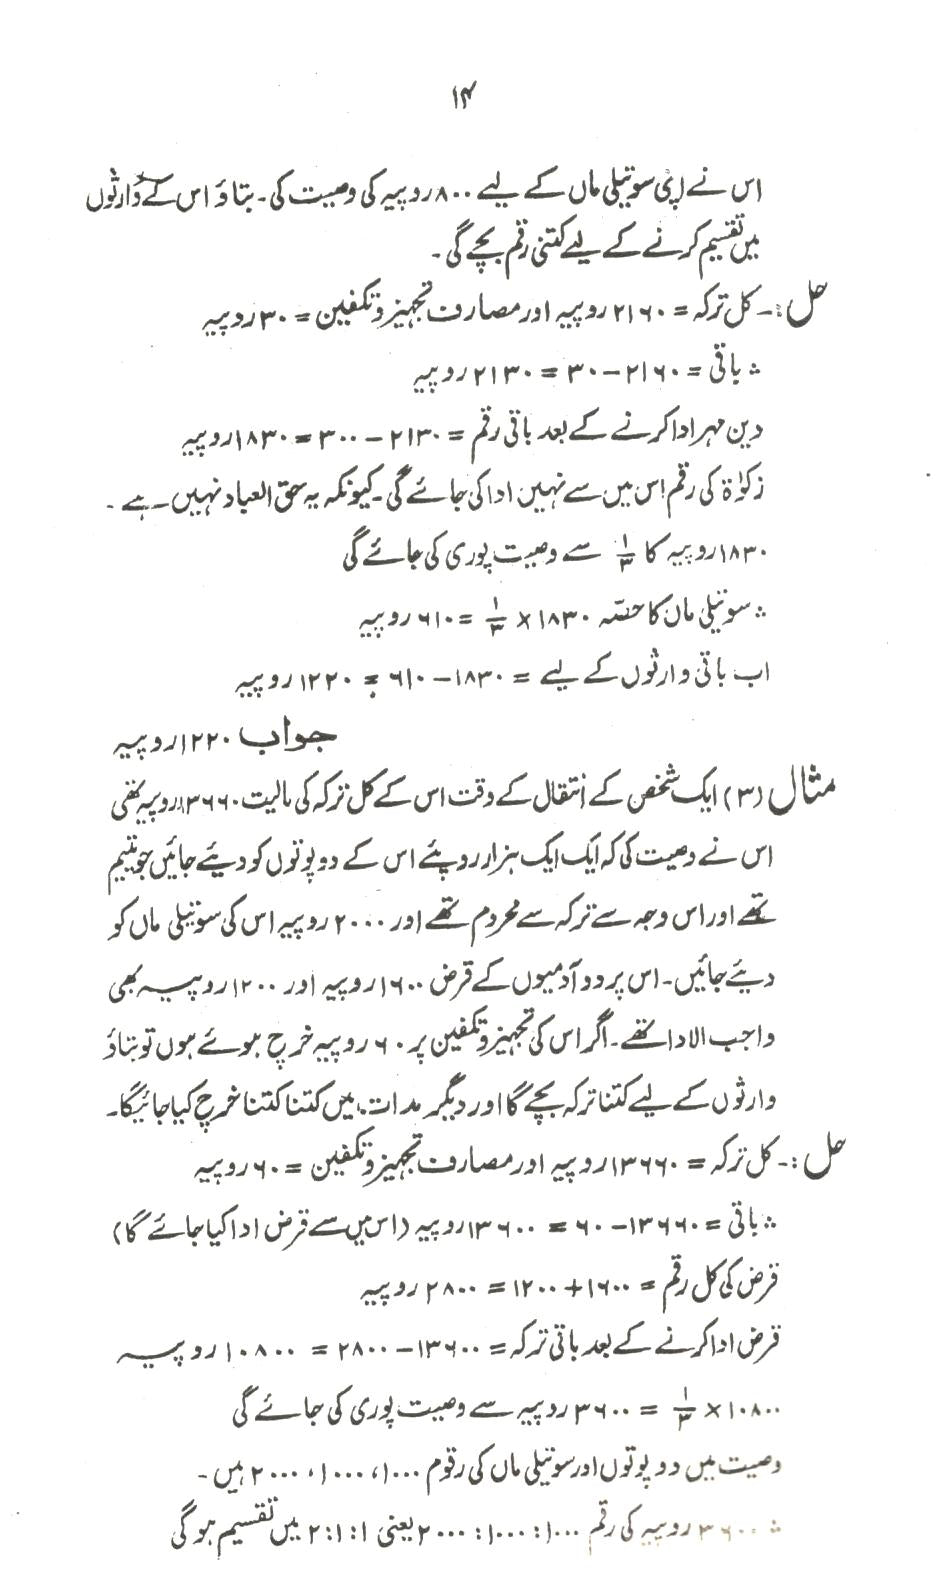 ۱۴
اس نے اپنی سوتیلی ماں کے لیے ۸۰۰ روپیہ کی وصیت کی۔ بتاؤ اس کے وارثوں
میں تقسیم کرنے کے لیے کتنی رقم بچے گی۔
حل:۔ کل ترکہ = ۲۱۶۰ روپیہ اور مصارف تجہیز و تکفین = ۳۰ روپیہ
∴ باقی = ۲۱۶۰ – ۳۰ = ۲۱۳۰ روپیہ
دین مہر ادا کرنے کے بعد باقی رقم = ۲۱۳۰ – ۳۰۰ = ۱۸۳۰ روپیہ
زکوٰۃ کی رقم اس میں سے نہیں ادا کی جائے گی۔ کیونکہ یہ حق العباد نہیں ہے۔
۱۸۳۰ روپیہ کا ۱/۳ سے وصیت پوری کی جائے گی
∴ سوتیلی ماں کا حصّہ ۱۸۳۰ × ۱/۳ = ۶۱۰ روپیہ
اب باقی وارثوں کے لیے = ۱۸۳۰ – ۶۱۰ = ۱۲۲۰ روپیہ
جواب ۱۲۲۰ روپیہ
مثال (۳) ایک شخص کے انتقال کے وقت اس کے کل ترکہ کی مالیت ۱۳۶۶۰ روپیہ تھی
اس نے وصیت کی کہ ایک ایک ہزار روپئے اس کے دو پوتوں کو دیئے جائیں جو یتیم
تھے اور اس وجہ سے ترکہ سے محروم تھے اور ۲۰۰۰ روپیہ اس کی سوتیلی ماں کو
دیئے جائیں۔ اس پر دو آدمیوں کے قرض ۱۶۰۰ روپیہ اور ۱۲۰۰ روپیہ بھی
واجب الادا تھے۔ اگر اس کی تجہیز و تکفین پر ۶۰ روپیہ خرچ ہوئے ہوں تو بتاؤ
وارثوں کے لیے کتنا ترکہ بچے گا اور دیگر مدات میں کتنا کتنا خرچ کیا جائیگا۔
حل:۔ کل ترکہ = ۱۳۶۶۰ روپیہ اور مصارف تجہیز و تکفین = ۶۰ روپیہ
∴ باقی = ۱۳۶۶۰ – ۶۰ = ۱۳۶۰۰ روپیہ (اس میں سے قرض ادا کیا جائے گا)
قرض کی کل رقم = ۱۶۰۰ + ۱۲۰۰ = ۲۸۰۰ روپیہ
قرض ادا کرنے کے بعد باقی ترکہ = ۱۳۶۰۰ – ۲۸۰۰ = ۱۰۸۰۰ روپیہ
۱۰۸۰۰ × ۱/۳ = ۳۶۰۰ روپیہ سے وصیت پوری کی جائے گی
وصیت میں دو پوتوں اور سوتیلی ماں کی رقوم ۱۰۰۰، ۱۰۰۰، ۲۰۰۰ ہیں۔
∴ ۳۶۰۰ روپیہ کی رقم ۱۰۰۰ : ۱۰۰۰ : ۲۰۰۰ یعنی ۱ : ۱ : ۲ میں تقسیم ہوگی